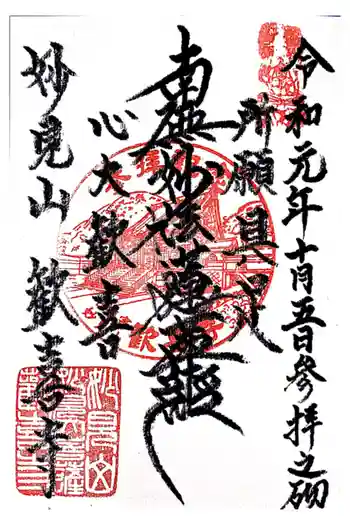 令和元年十月五日參拜之砌
所願具足
南無妙法蓮華經
心大歓喜
妙見山 歓喜寺